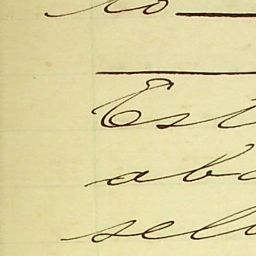 to
Est
abo
sel